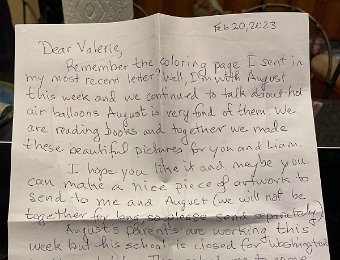 Feb 20, 2023
Dear Valerie,
Remember the coloring page I sent in
my most recent letter? Well, I'm with August
this week and we continued to talk about hot
air balloons. August is very fond of them. We
are reading books and together we made
these beautiful pictures for you and Liam.
I hope you like it and maybe you
can make a nice piece of artwork to
send to me and August (we will not be
together for long so please send separately).
August's parents are working this
week but his school is closed for Washington